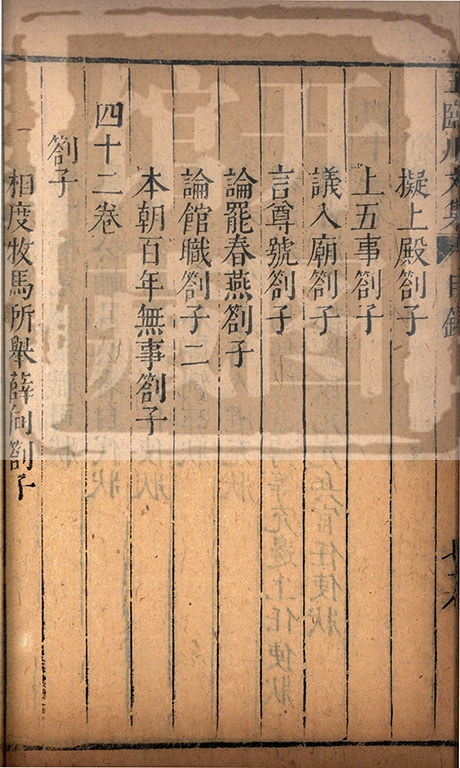 王臨川文集 目錄
擬上殿劄子
上五事劄子
議入廟劄子
言尊號劄子
論罷春燕劄子
論館職劄子二
本朝百年無事劄子
四十二卷
劄子
相度牧馬所舉薛向劄子